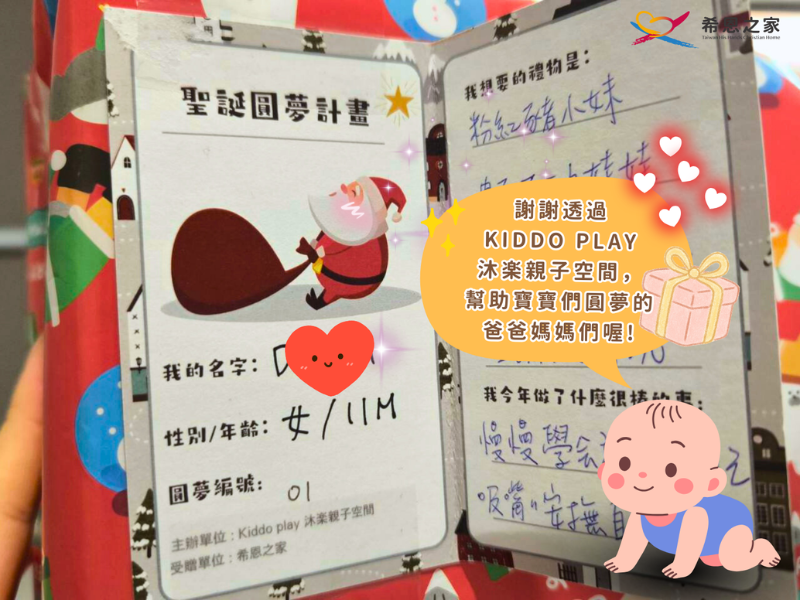 希恩之家
聖誕圓夢計畫
我的名字：
性別/年齡：女/11M
圓夢編號：01
主辦單位：Kiddo play 沐楽親子空間
受贈單位：希恩之家
我想要的禮物是：
粉紅豬小妹
娃娃
謝謝透過
KIDDO PLAY
沐楽親子空間，
幫助寶寶們圓夢的
爸爸媽媽們喔!
我今年做了什麼很棒的事：
慢慢學会
吸嘴"安撫自